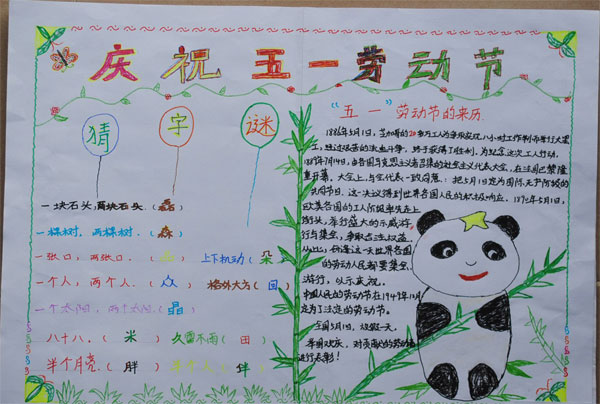 庆祝五一劳动节
猜字谜
一块石头,两块石头.(磊)
一棵树,两棵树.(森)
一张口,两张口.
上下机动(朵)
一个人,两个人.(众)
格外大方(回)
一个太阳,两个太阳.(晶)
八十八.(米)
久雷不雨(田)
半个月亮.(胖)
伴
“五一”劳动节的来历.
1886年5月1日,芝加哥的20多万工人为争取实现八小时工作制而举行大罢
工,经过艰苦的流血斗争,终于获得了胜利,为纪念这次工人行动,
1889年7月14日,由各国马克思主义者召集的社会主义代表大会,在法国巴黎隆
重开幕,大会上,与会代表一致同意:把5月1日定为国际无产阶级的
共同节日.这一决议得到世界各国工人的积极响应.1890年5月1日,
欧美各国的工人阶级率先走上
街头,举行盛大的示威游
行与集会,争取合法权益.
从此,每逢这一天世界各国
的劳动人民都要集会
游行,以示庆祝.
中国人民的劳动节在1949年12月
定为了法定的劳动节.
全国5月1日,放假一天.
举国欢庆,对贡献的劳动者
进行表彰!